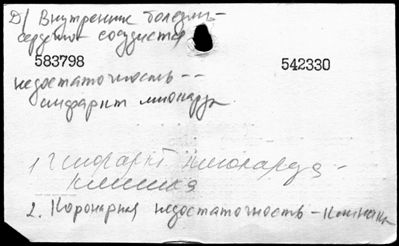 Д/ Внутренние болезни-
сердечно сосудистая
583798 542330
недостаточность--
инфаркт миокарда
1 Инфаркт миокарда-
клиника
2. Коронарная недостаточность-клиника